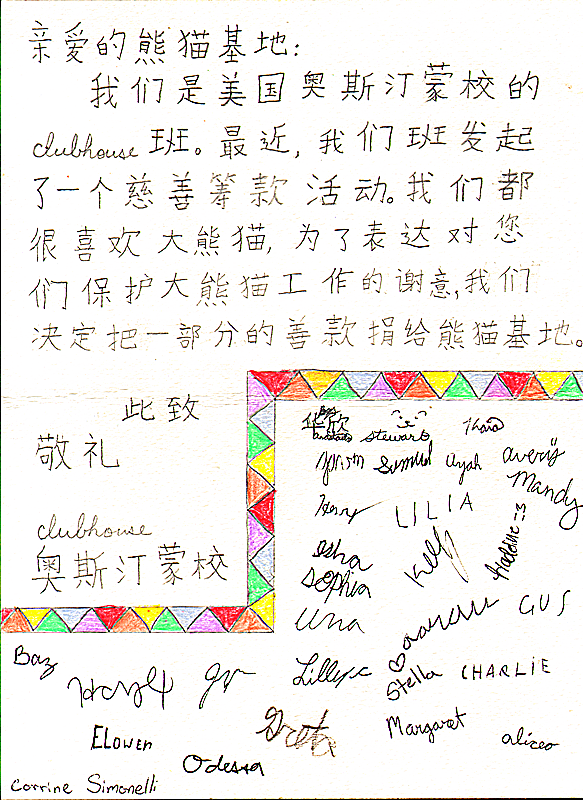 亲爱的熊猫基地:
我们是美国奥斯汀蒙校的
clubhouse 班。最近, 我们班发起
了一个慈善筹款活动。我们都
很喜欢大熊猫, 为了表达对您
们保护大熊猫工作的谢意, 我们
决定把一部分的善款捐给熊猫基地。
此致
敬礼
clubhouse
奥斯汀蒙校
华欣
stewart Khara
Samuel Ayah Averijs
Mandy
Henry LILIA
Esha Kelly Adeline :3
Sophia
Una GUS
Baz
Stella CHARLIE
Greta Margaret alice
ELOWEN
Odessa
Corrine Simonelli